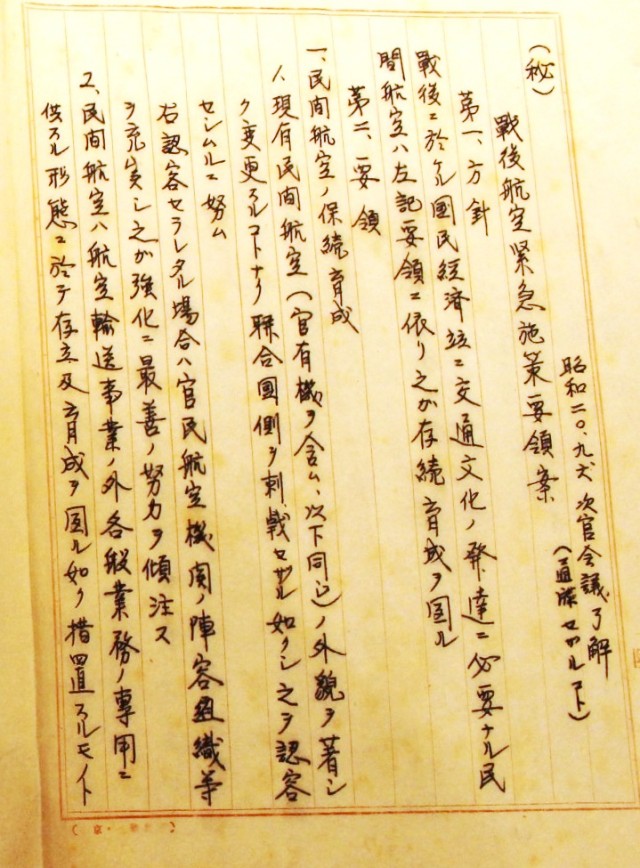 (秘)
戰後航空緊急施策要領案
昭和二〇、九 次官会議了解
セザルコト)
第一、方針
戰後ニ於ケル國民経済竝ニ交通文化ノ発達ニ必要ナル民
間航空ハ左記要領ニ依リ之ガ存続育成ヲ図ル
第二、要領
一、民間航空ノ保続育成
1、現有民間航空(官有機ヲ含ム、以下同ジ)ノ外貌ヲ著シ
ク変更スルコトナク聯合國側ヲ刺戟セザル如クシ之ヲ認容
セシムルニ努ム
右認容セラレタル場合ハ官民航空機関ノ陣容組織等
ヲ充実シ之ガ強化ニ最善ノ努力ヲ傾注ス
2、民間航空ハ航空輸送事業ノ外各般業務ノ専用ニ
供スル形態ニ於テ存立及育成ヲ図ル如ク措置スルモノト